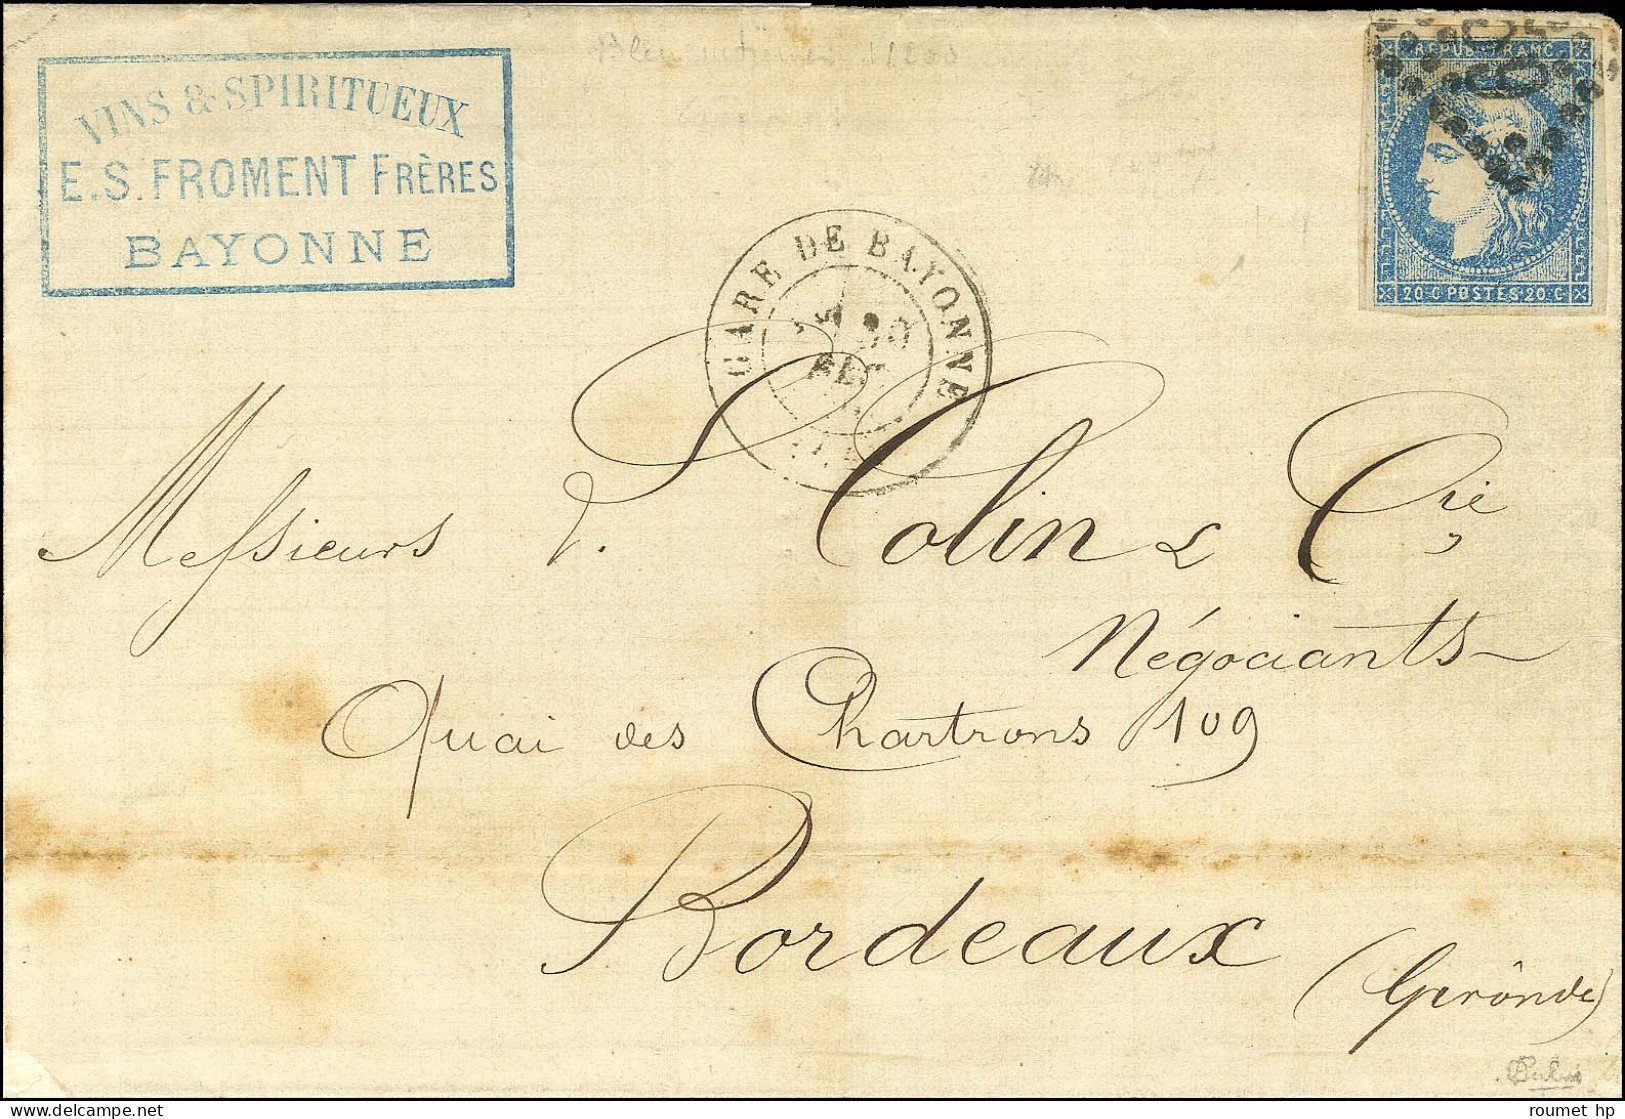 VINS & SPIRITUEUX
E.S. FROMENT FRÈRES
BAYONNE
REPUB. FRANC.
20 C POSTES 20 C
GARE DE BAYONNE
Messieurs P. Colin & Cie
Négociants
Quai des Chartrons 109
Bordeaux
(Gerônde)
roumet hp
POSTE DELCAMPE